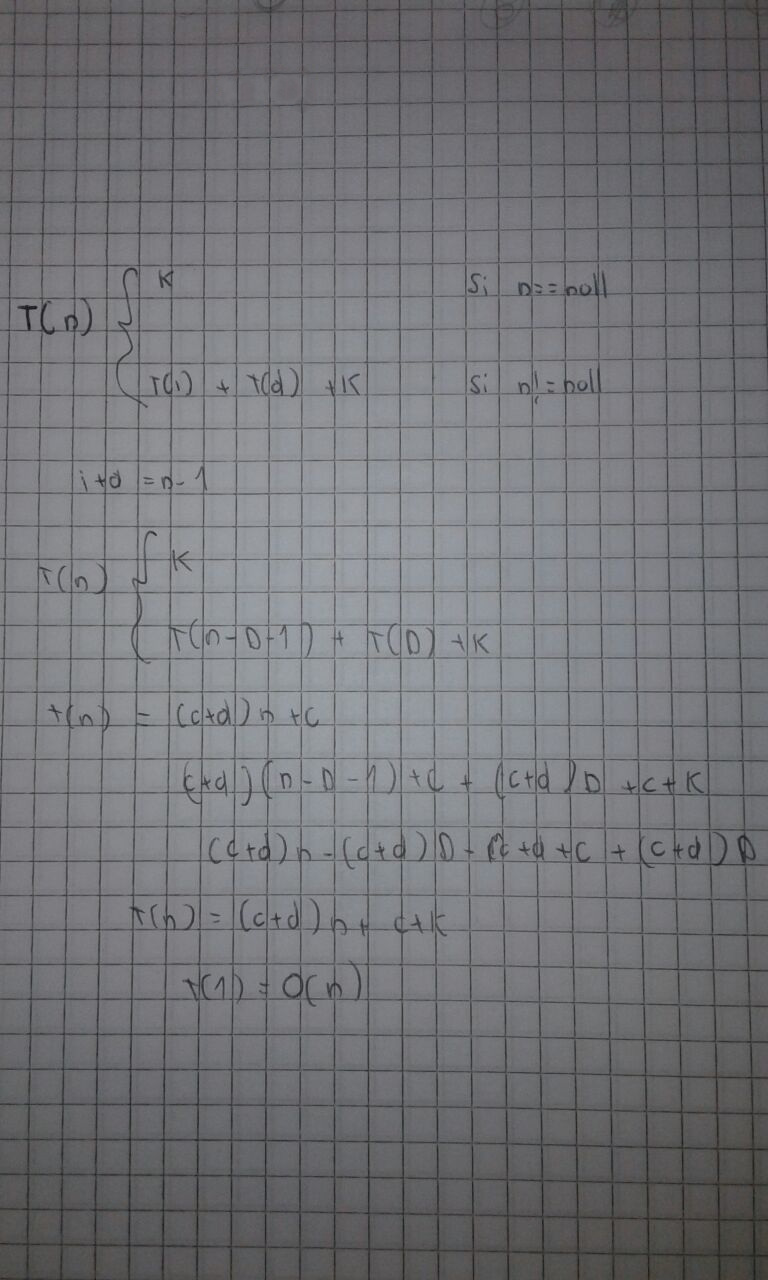 K Si n==null
T(n) {
T(i) + T(d) + K Si n!=null
i+d = n-1
K
T(n) {
T(n-D-1) + T(D) + K
t(n) = (c+d)n+c
(c+d)(n-D-1)+c + (c+d)D +c+K
(c+d)n-(c+d)D - c+d+c + (c+d)D
T(n) = (c+d)n+ c+K
T(1) = O(n)